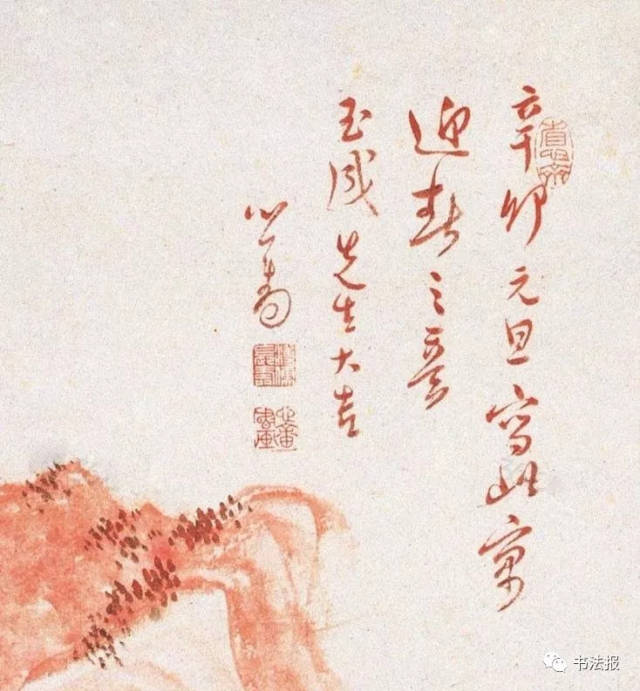 辛卯元旦寫此寓
迎春之意
玉成先生大吉
心畬
书法报